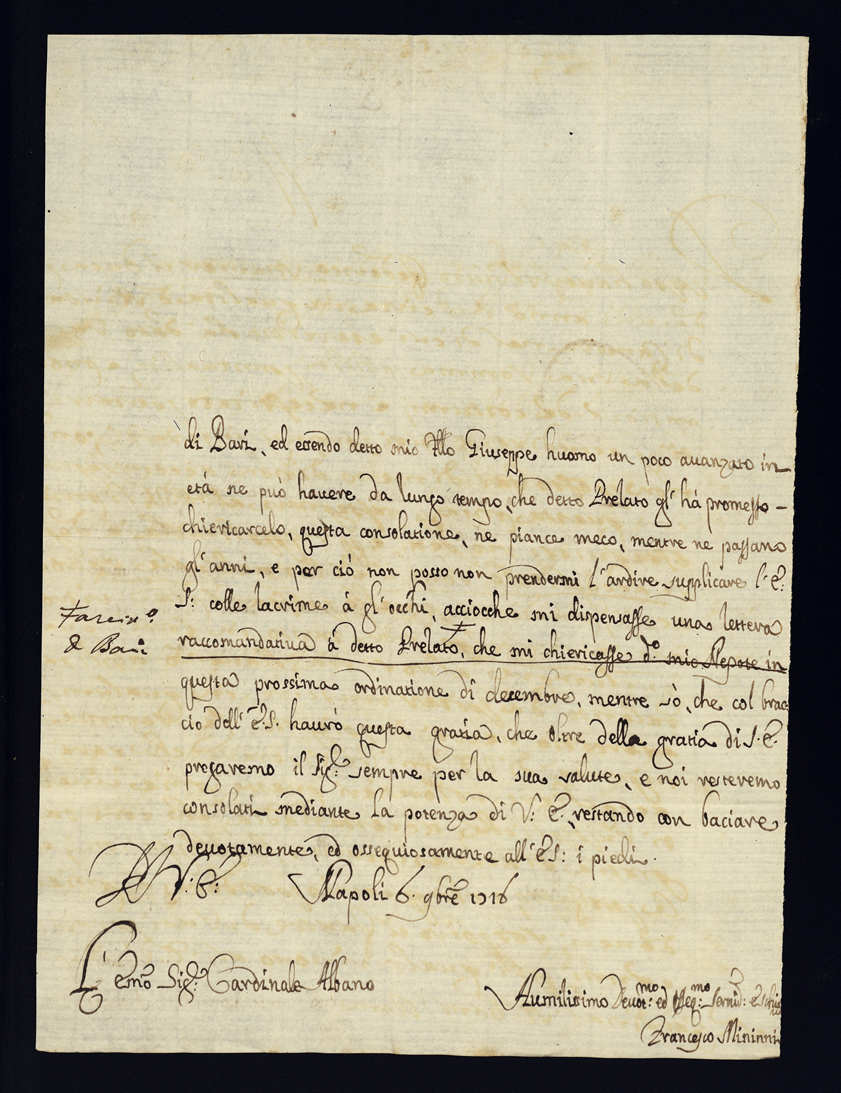 di Bari, ed essendo detto mio Fllo Giuseppe huomo un poco avanzato in
età ne può havere da lungo tempo, che detto Prelato gl'há promesso -
chiericarcelo, questa consolatione, nè piance meco, mentre ne passano
gl'anni, e per ció non posso non prendermi l'ardire supplicare l'E:
S: colle lacrime á gl'occhi, acciocche mi dispensasse una lettera
raccomandativa á detto Prelato, che mi chiericasse d.º mio Nepote in
questa prossima ordinatione di decembre, mentre sò, che col brac
cio dell'E.S. haurò questa gratia, che oltre della gratia di S.E.
pregaremo il Sig.r sempre per la sua salute, e noi resteremo
consolati mediante la potenza di V: E., restando con baciare
devotamente, ed ossequiosamente all'E.S: i piedi.
Farsi
Bari
D V: E: Napoli 6. 9bre 1716
L'emo Sig.r Cardinale Albano
Humilissimo Devot:mo ed Oseq:mo Servid:
Francesco Mininni